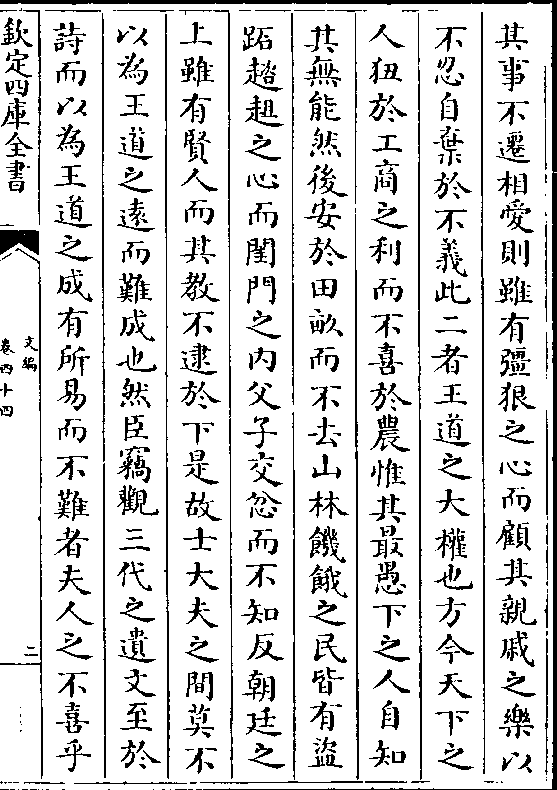 其事不遷相愛則雖有彊狠之心而顧其親戚之樂以
不忍自棄於不義此二者王道之大權也方今天下之
人狃於工商之利而不喜於農惟其最愚下之人自知
其無能然後安於田畝而不去山林饑餓之民皆有盜
跖趑趄之心而閨門之内父子交忿而不知反朝廷之
上雖有賢人而其教不逮於下是故士大夫之間莫不
以為王道之遠而難成也然臣竊觀三代之遺文至於
詩而以為王道之成有所易而不難者夫人之不喜乎
欽定四庫全書
文編
卷四十四
二